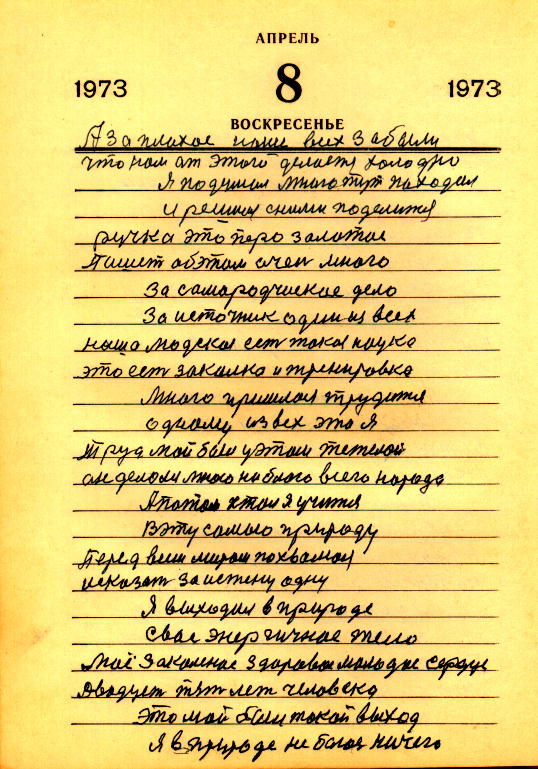 АПРЕЛЬ
1973 8 1973
ВОСКРЕСЕНЬЕ
А за плохое наше всех забыли
что нам от этого делается холодно
Я подумал много тут находил
и решил сними поделится
ручка это перо золотое
Пишет обэтом очен много
За самародческое дело
За источник один из всех
наша людская ест такая наука
это ест закалка и тренировка
Много пришлося трудится
одному извех это я
Труд мой был уэтом тежелой
он делолся много наблаго всего народа
А потом стал я учится
Вэту самаю природу
Перед всем миром похвалюся
исказат заистену одну
Я выходил в природе
свае энергичное тело
Моё закаленое здоровое молодое сердце
двадцет пят лет человека
Это мой был такой выход
Я в природе не боюся ничего